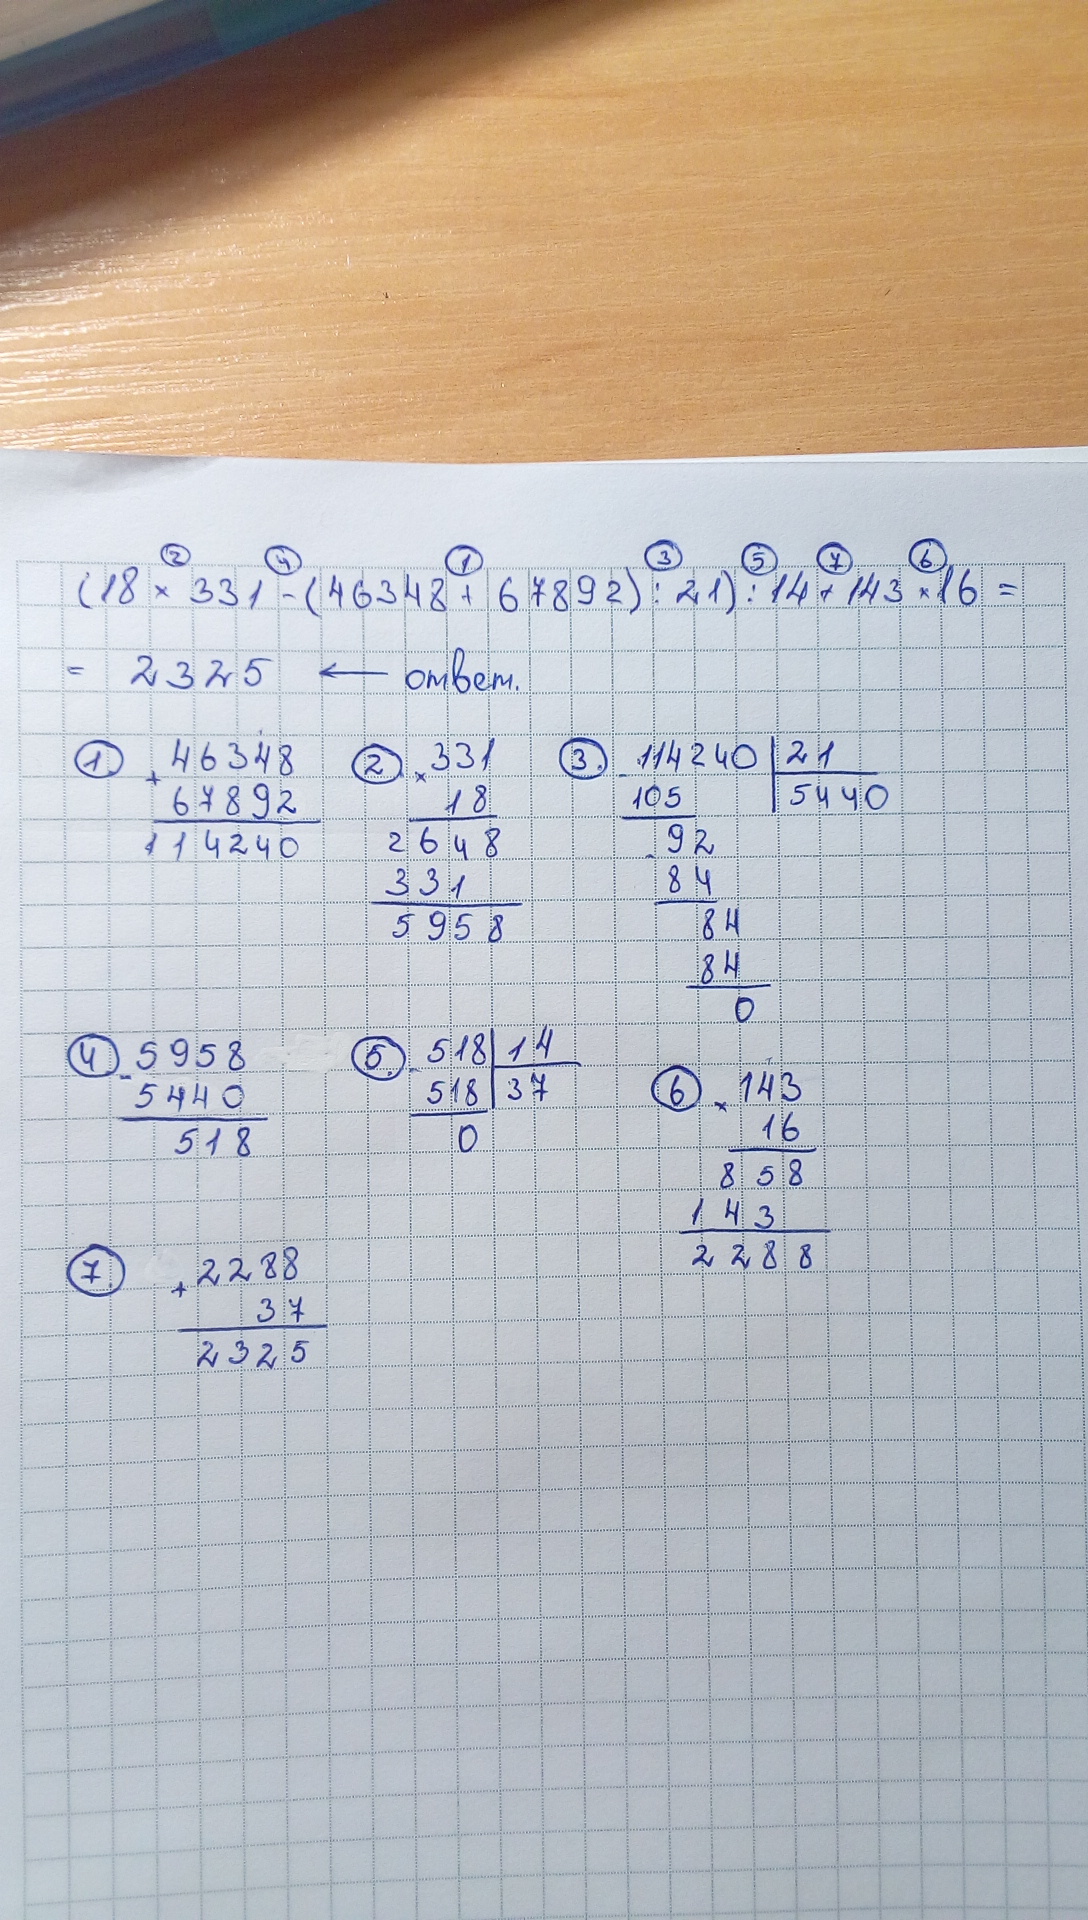 ② ④ ① ③ ⑤ ⑦ ⑥
(18 × 331 - (46348 + 67892) : 21) : 14 + 143 × 16 =
= 2325 ← ответ.
① + 46348
67892
114240
② × 331
18
2648
331
5958
③ - 114240 | 21
105 | 5440
- 92
84
84
84
0
④ - 5958
5440
518
⑤ - 518 | 14
518 | 37
0
⑥ × 143
16
858
143
2288
⑦ + 2288
37
2325